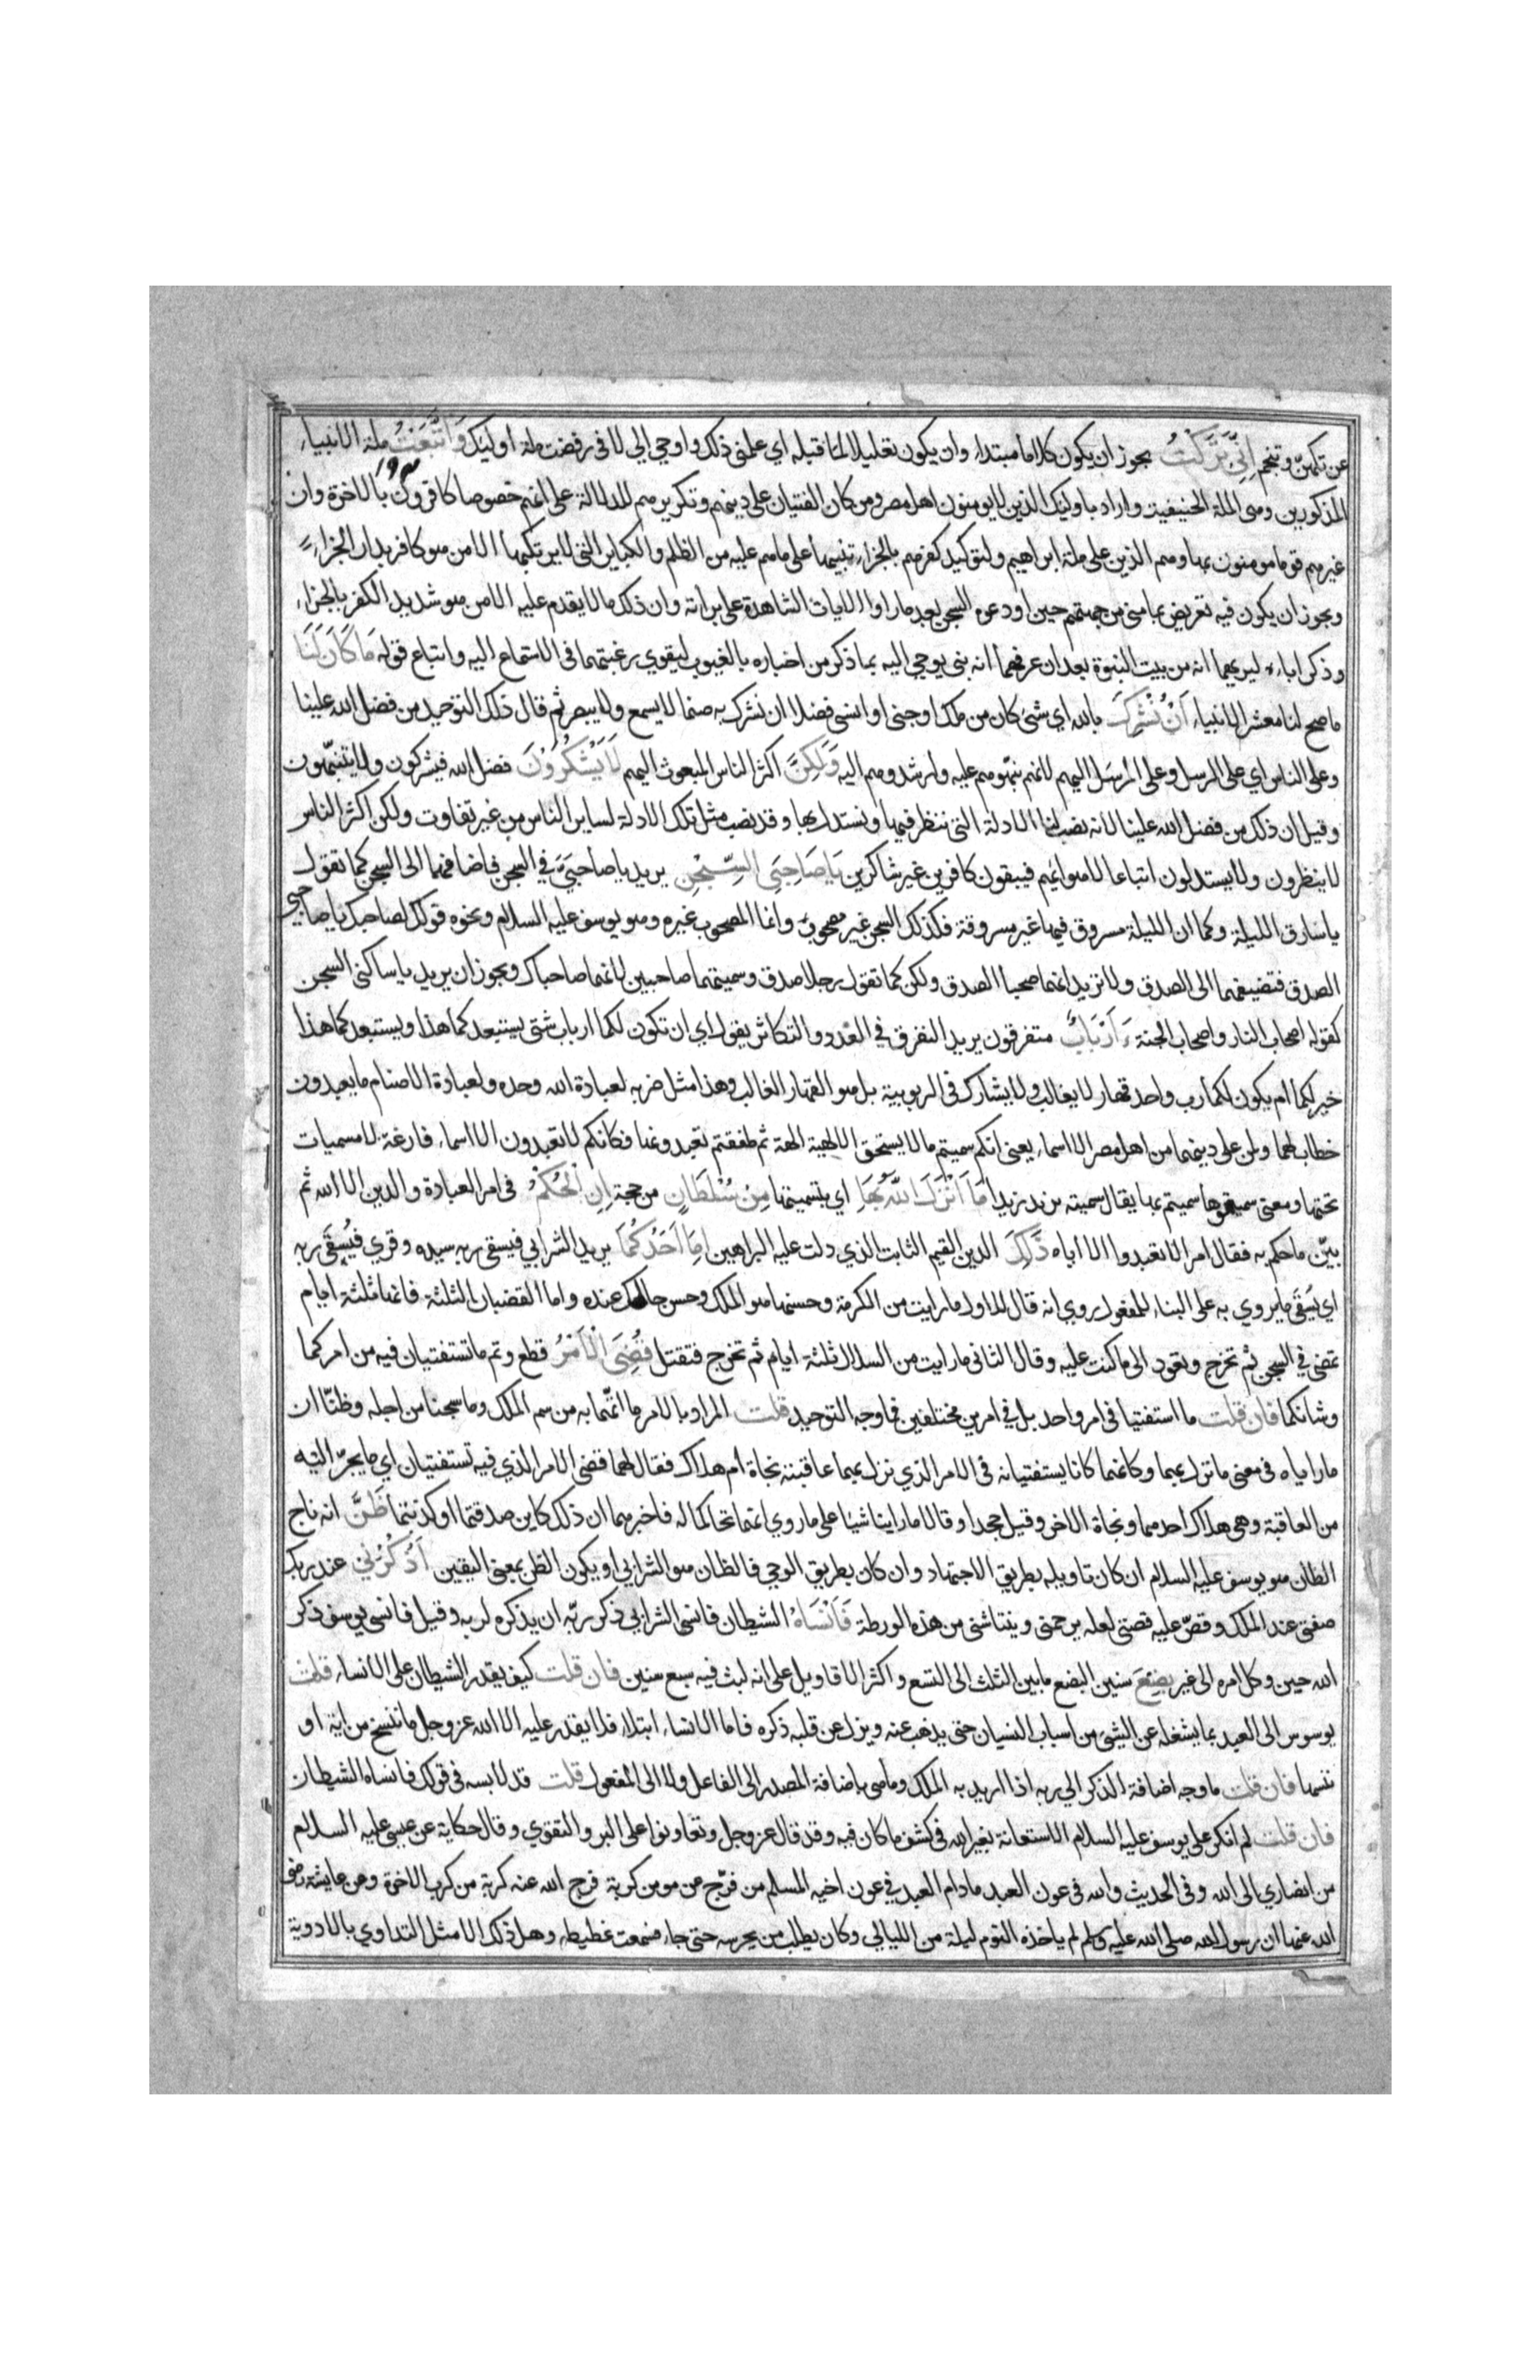 عن تكهن وتنجم اِنِّي تَرَكْتُ يجوز ان يكون كلاما مبتداء وان يكون تعليلا لما قبله اي علمني ذلك واوحي الي لاني رفضت ملة اوليك وَاتَّبَعْتُ ملة الانبياء
المذكورين وهى الملة الحنيفية واراد باوليك الذين لا يومنون اهل مصر ومن كان الفتيان على دينهم وتكريرهم للدلالة على انهم خصوصا كافرون بالاخرة وان
غيرهم قوما مومنون بها وهم الذين على ملة ابراهيم ولتوكيد كفرهم بالجزاء تنبيها على ما هم عليه من الظلم والكباير التى لا يرتكبها الا من هو كافر بدار الجزاء
ويجوز ان يكون فيه تعريض بما منى من جهتهم حين اودعوه السجن بعد ما راوا الايات الشاهدة على براته وان ذلك ما لا يقدم عليه الا من هو شديد الكفر بالجزاء
وذكر اباءه ليريهما انه من بيت النبوة بعد ان عرفهما انه نبى يوحي اليه بما ذكر من اخباره بالغيوب ليقوي رغبتهما فى الاستماع اليه واتباع قوله مَا كَانَ لَنَا
ما صح لنا معشر الانبياء اَنْ نُشْرِكَ بالله اي شئ كان من ملك او جنى او انسى فضلا ان نشرك به صنما لا يسمع ولا يبصر ثم قال ذلك التوحيد من فضل الله علينا
وعلى الناس اي على الرسل وعلى المُرسَل اليهم لانهم نبهوهم عليه وارشدوهم اليه وَلَكِنَّ اكثر الناس المبعوث اليهم لَا يَشْكُرُونَ فضل الله فيشركون ولا يتنبهون
وقيل ان ذلك من فضل الله علينا لانه نصب لنا الادلة التى ننظر فيها ونستدل بها وقد نصب مثل تلك الادلة لساير الناس من غير تفاوت ولكن اكثر الناس
لا ينظرون ولا يستدلون اتباعا لاهوائهم فيبقون كافرين غير شاكرين يَا صَاحِبَيِ السِّجْنِ يريد يا صاحبَيَّ في السجن فاضافهما الى السجن كما تقول
يا سارق الليلة وكما ان الليلة مسروق فيها غير مسروقة فكذلك السجن غير مصحوب وانما المصحوب غيره وهو يوسف عليه السلام ونحوه قولك لصاحبك يا صاحبى
الصدق فتضيفهما الى الصدق ولا تريد انهما صحبا الصدق ولكن كما تقول رجلا صدق وسميتهما صاحبين لانهما صاحباك ويجوز ان يريد يا ساكنى السجن
كقوله اصحاب النار واصحاب الجنة ءَاَرْبَابٌ متفرقون يريد التفرق في العدد والتكاثر يقول اي ان تكون لكما ارباب شتى يستبعد كما هذا ويستبعد كما هذا
خير لكما ام يكون لكما رب واحد قهار لا يغالب ولا يشارك فى الربوبية بل هو القهار الغالب وهذا مثل ضربه لعبادة الله وحده ولعبادة الاصنام ما يعبدون
خطاب لهما ولمن على دينهما من اهل مصر الا اسماء يعنى انكم سميتم ما لا يستحق الالهية الهة ثم طفقتم تعبدونها فكانكم لا تعبدون الا اسماء فارغة لا مسميات
تحتها ومعنى سميتموها سميتم بها يقال سميته بزيد زيدا مَا اَنْزَلَ اللَّهُ بِهَا اي بتسميتها مِنْ سُلْطَانٍ من حجة اِنِ الْحُكْمُ فى امر العبادة والدين الا الله ثم
بيّن ما حكم به فقال امر الا تعبدوا الا اياه ذَلِكَ الدين القيم الثابت الذي دلت عليه البراهين اِمَّا اَحَدُكُمَا يريد الشرابي فيسقى ربه سيده وقري فيُسقَى ربه
اي يُسقَى ما يروي به على البناء للمفعول روي انه قال للاول ما رايت من الكرمة وحسنها هو الملك وحسن حالك عنده واما القضبان الثلثة فانها ثلثة ايام
تمضى في السجن ثم تخرج وتعود الى ما كنت عليه وقال للثانى ما رايت من السلال ثلثة ايام ثم تخرج فتقتل قُضِيَ الْاَمْرُ قطع وتم ما تستفتيان فيه من امركما
وشانكما فان قلت ما استفتيا فى امر واحد بل في امرين مختلفين فما وجه التوحيد قلت المراد بالامر ما اتّهما به من سم الملك وما سجنا من اجله وظنّا ان
ما راياه فى معنى ما نزل بهما وكانهما كانا يستفتيانه فى الامر الذي نزل بهما عاقبته نجاة ام هلاك فقال لهما قضى الامر الذي فيه تستفتيان اي ما يجرّ اليه
من العاقبة وهى هلاك احدهما ونجاة الاخر وقيل جحدا وقالا ما راينا شيا على ما روي انهما تحالما له فاخبرهما ان ذلك كاين صدقتما او كذبتما ظَنَّ انه ناج
الظان هو يوسف عليه السلام ان كان تاويله بطريق الاجتهاد وان كان بطريق الوحي فالظان هو الشرابي او يكون الظن بمعنى اليقين اُذْكُرْنِي عند ربك
صفنى عند الملك وقصّ عليه قصتى لعله يرحمنى وينتاشنى من هذه الورطة فَاَنْسَاهُ الشيطان فانسى الشرابي ذكر ربّه ان يذكره لربه وقيل فانسى يوسف ذكر
الله حين وكل امره الى غيره بِضْعَ سنين البضع ما بين الثلث الى التسع واكثر الاقاويل على انه لبث فيه سبع سنين فان قلت كيف يقدر الشيطان على الانساء قلت
يوسوس الى العبد بما يشغله عن الشيئ من اسباب النسيان حتى يذهب عنه ويزل عن قلبه ذكره فاما الانساء ابتداء فلا يقدر عليه الا الله عز وجل ما ننسخ من اية او
ننسها فان قلت ما وجه اضافة الذكر الي ربه اذا اريد به الملك وما هى باضافة المصدر الى الفاعل ولا الى المفعول قلت قد لابسه فى قولك فانساه الشيطان
فان قلت لم انكر على يوسف عليه السلام الاستعانة بغير الله فى كشف ما كان فيه وقد قال عز وجل وتعاونوا على البر والتقوي وقال حكاية عن عيسى عليه السلام
من انصاري الى الله وفى الحديث والله فى عون العبد ما دام العبد في عون اخيه المسلم من فرّج عن مومن كربة فرج الله عنه كربة من كرب الاخرة وعن عايشة رضى
الله عنها ان رسول الله صلى الله عليه وسلم لم ياخذه النوم ليلة من الليالي وكان يطلب من يحرسه حتى جاء فسمعت غطيطه وهل ذلك الا مثل التداوي بالادوية